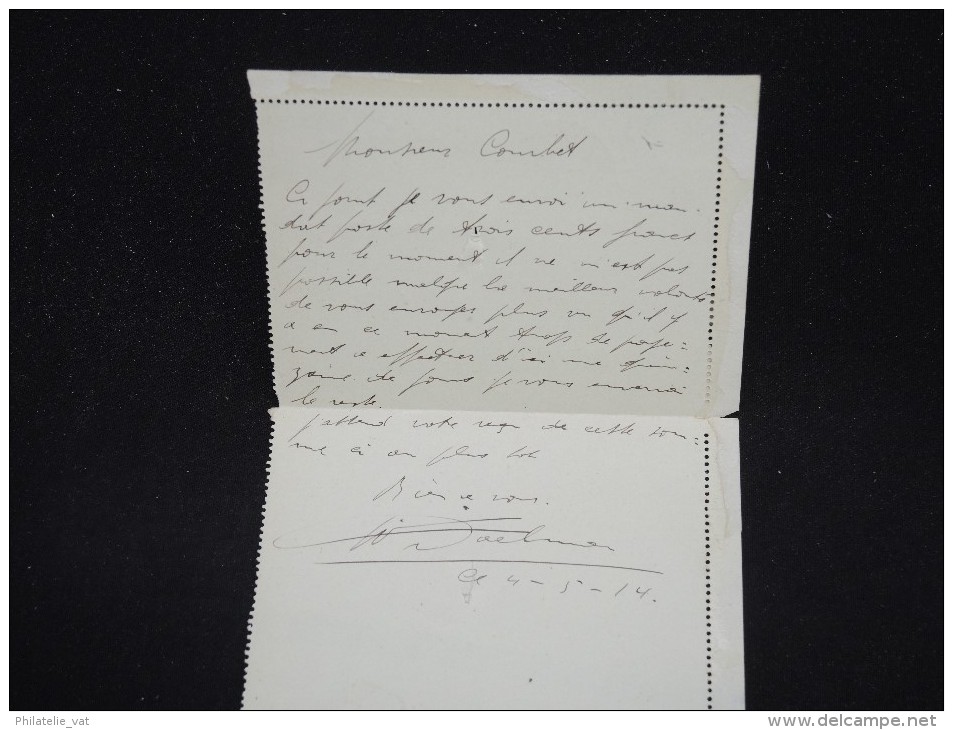 Monsieur Courbet
Ci joint je vous envoi un man-
dat poste de trois cents francs
pour le moment il ne m'est pas
possible malgre la meilleur volonté
de vous envoyer plus vu qu'il y
a en ce moment trop de paye=
ment a effectuer d'ici une quin-
zaine de jours je vous enverrai
le reste.
J'attend votre reçu de cette som=
me ci au plus tot
Bien a vous.
Ce 4-5-14.
Philatelie_vat
www.delcampe.net